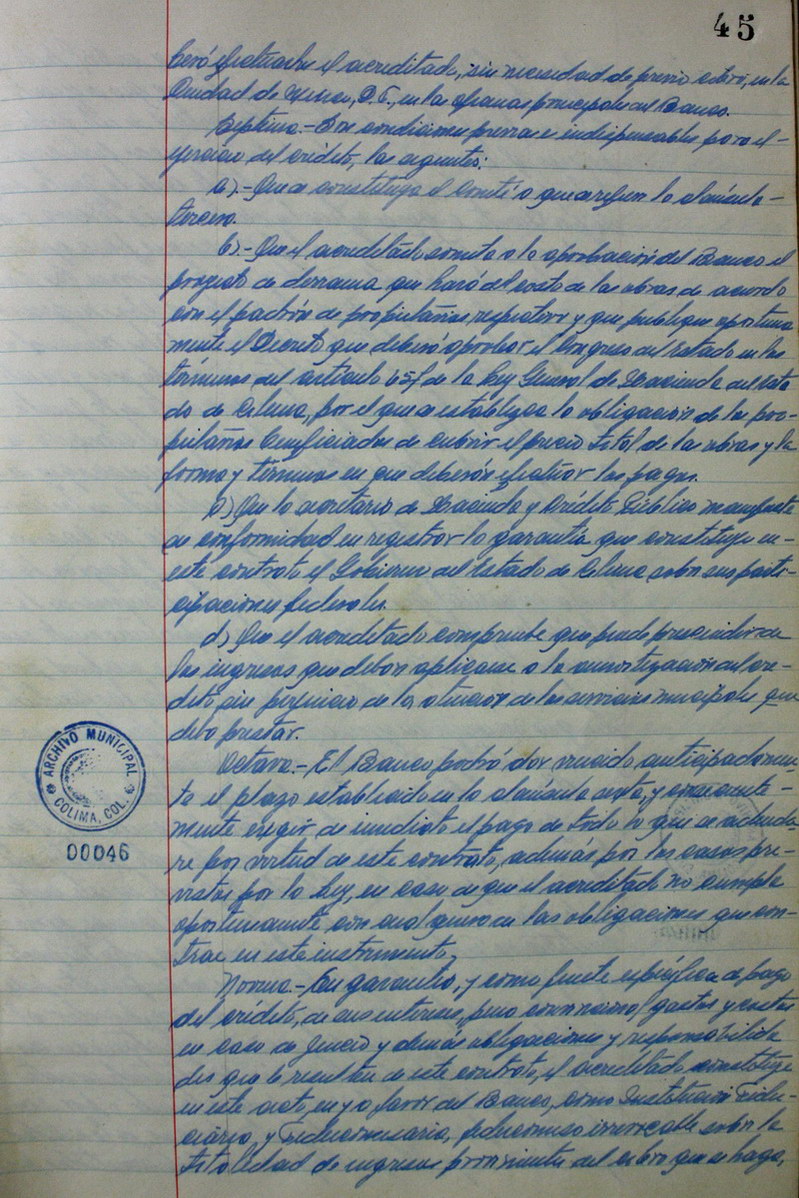 45
berá efectuarlos el acreditado, sin necesidad de previo cobro, en la
Ciudad de México, D.F., en las oficinas principales del Banco.
Séptima.- Son condiciones previas e indispensables para el e-
jercicio del crédito, las siguientes:
a).- Que se constituya el Comité a que se refiere la cláusula-
tercera.
b).- Que el acreditado someta a la aprobación del Banco el
proyecto de derrama que hará del costo de las obras de acuerdo
con el padrón de propietarios respectivo y que publique oportuna
mente el Decreto que deberá aprobar el Congreso del Estado en los
términos del artículo 65f de la Ley General de Hacienda del Esta
do de Colima, por el que se establezca la obligación de los pro-
pietarios beneficiados de cubrir el precio total de las obras y la
forma y términos en que deberán efectuar los pagos.
c) Que la secretaría de Hacienda y Crédito Público manifieste
su conformidad en registrar la garantía que constituye en-
este contrato el Gobierno del Estado de Colima sobre sus parti-
cipaciones federales.
d) Que el acreditado compruebe que puede prescindir de
los ingresos que deban aplicarse a la amortización del cré-
dito sin perjuicio de la atención de los servicios municipales que
deba prestar.
Octava.- El Banco podrá dar vencido anticipadamen-
te el plazo establecido en la cláusula sexta, y consecuente-
mente exigir de inmediato el pago de todo lo que se adeuda-
re por virtud de este contrato, además por los casos pre-
vistos por la Ley, en caso de que el acreditado no cumpla
oportunamente con cualquiera de las obligaciones que con-
trae en este instrumento.
Novena.- En garantía, y como fuente específica de pago
del crédito, de sus intereses, pena convencional, gastos y costas
en caso de juicio y demás obligaciones y responsabilida
des que le resulten de este contrato, el acreditado constituye
en este acto, en y a favor del Banco, como Institución Fidu-
ciaria, y Fideicomisaria, fideicomiso irrevocable sobre la
totalidad de ingresos provenientes del cobro que se haga,
ARCHIVO MUNICIPAL
COLIMA, COL.
00046